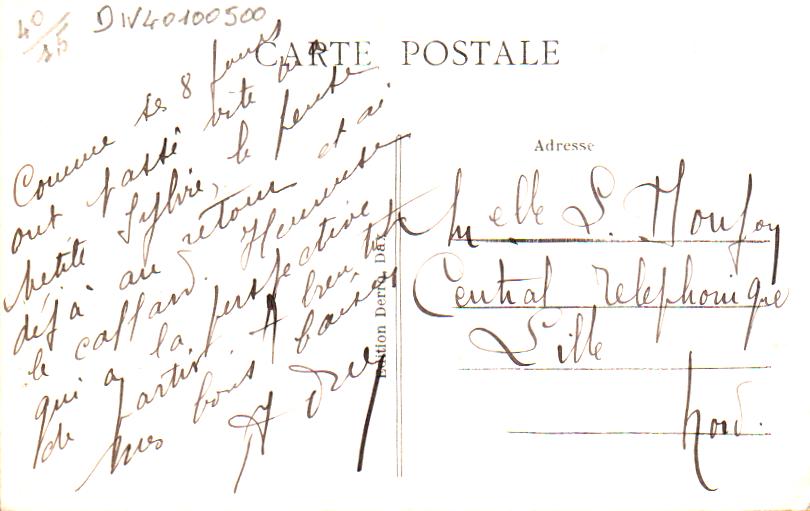 40/15
DIV40100500
CARTE POSTALE
Comme ses 8 jours
ont passé vite ma
petite Sylvie, je pense
déjà au retour et ai
le caffard. Heureuse
qui a la perspective
de partir. A bien tôt
mes bons baisers
Edition Derrey Dax
Adresse
Melle S.
Central Telephonique
Lille
Nord.